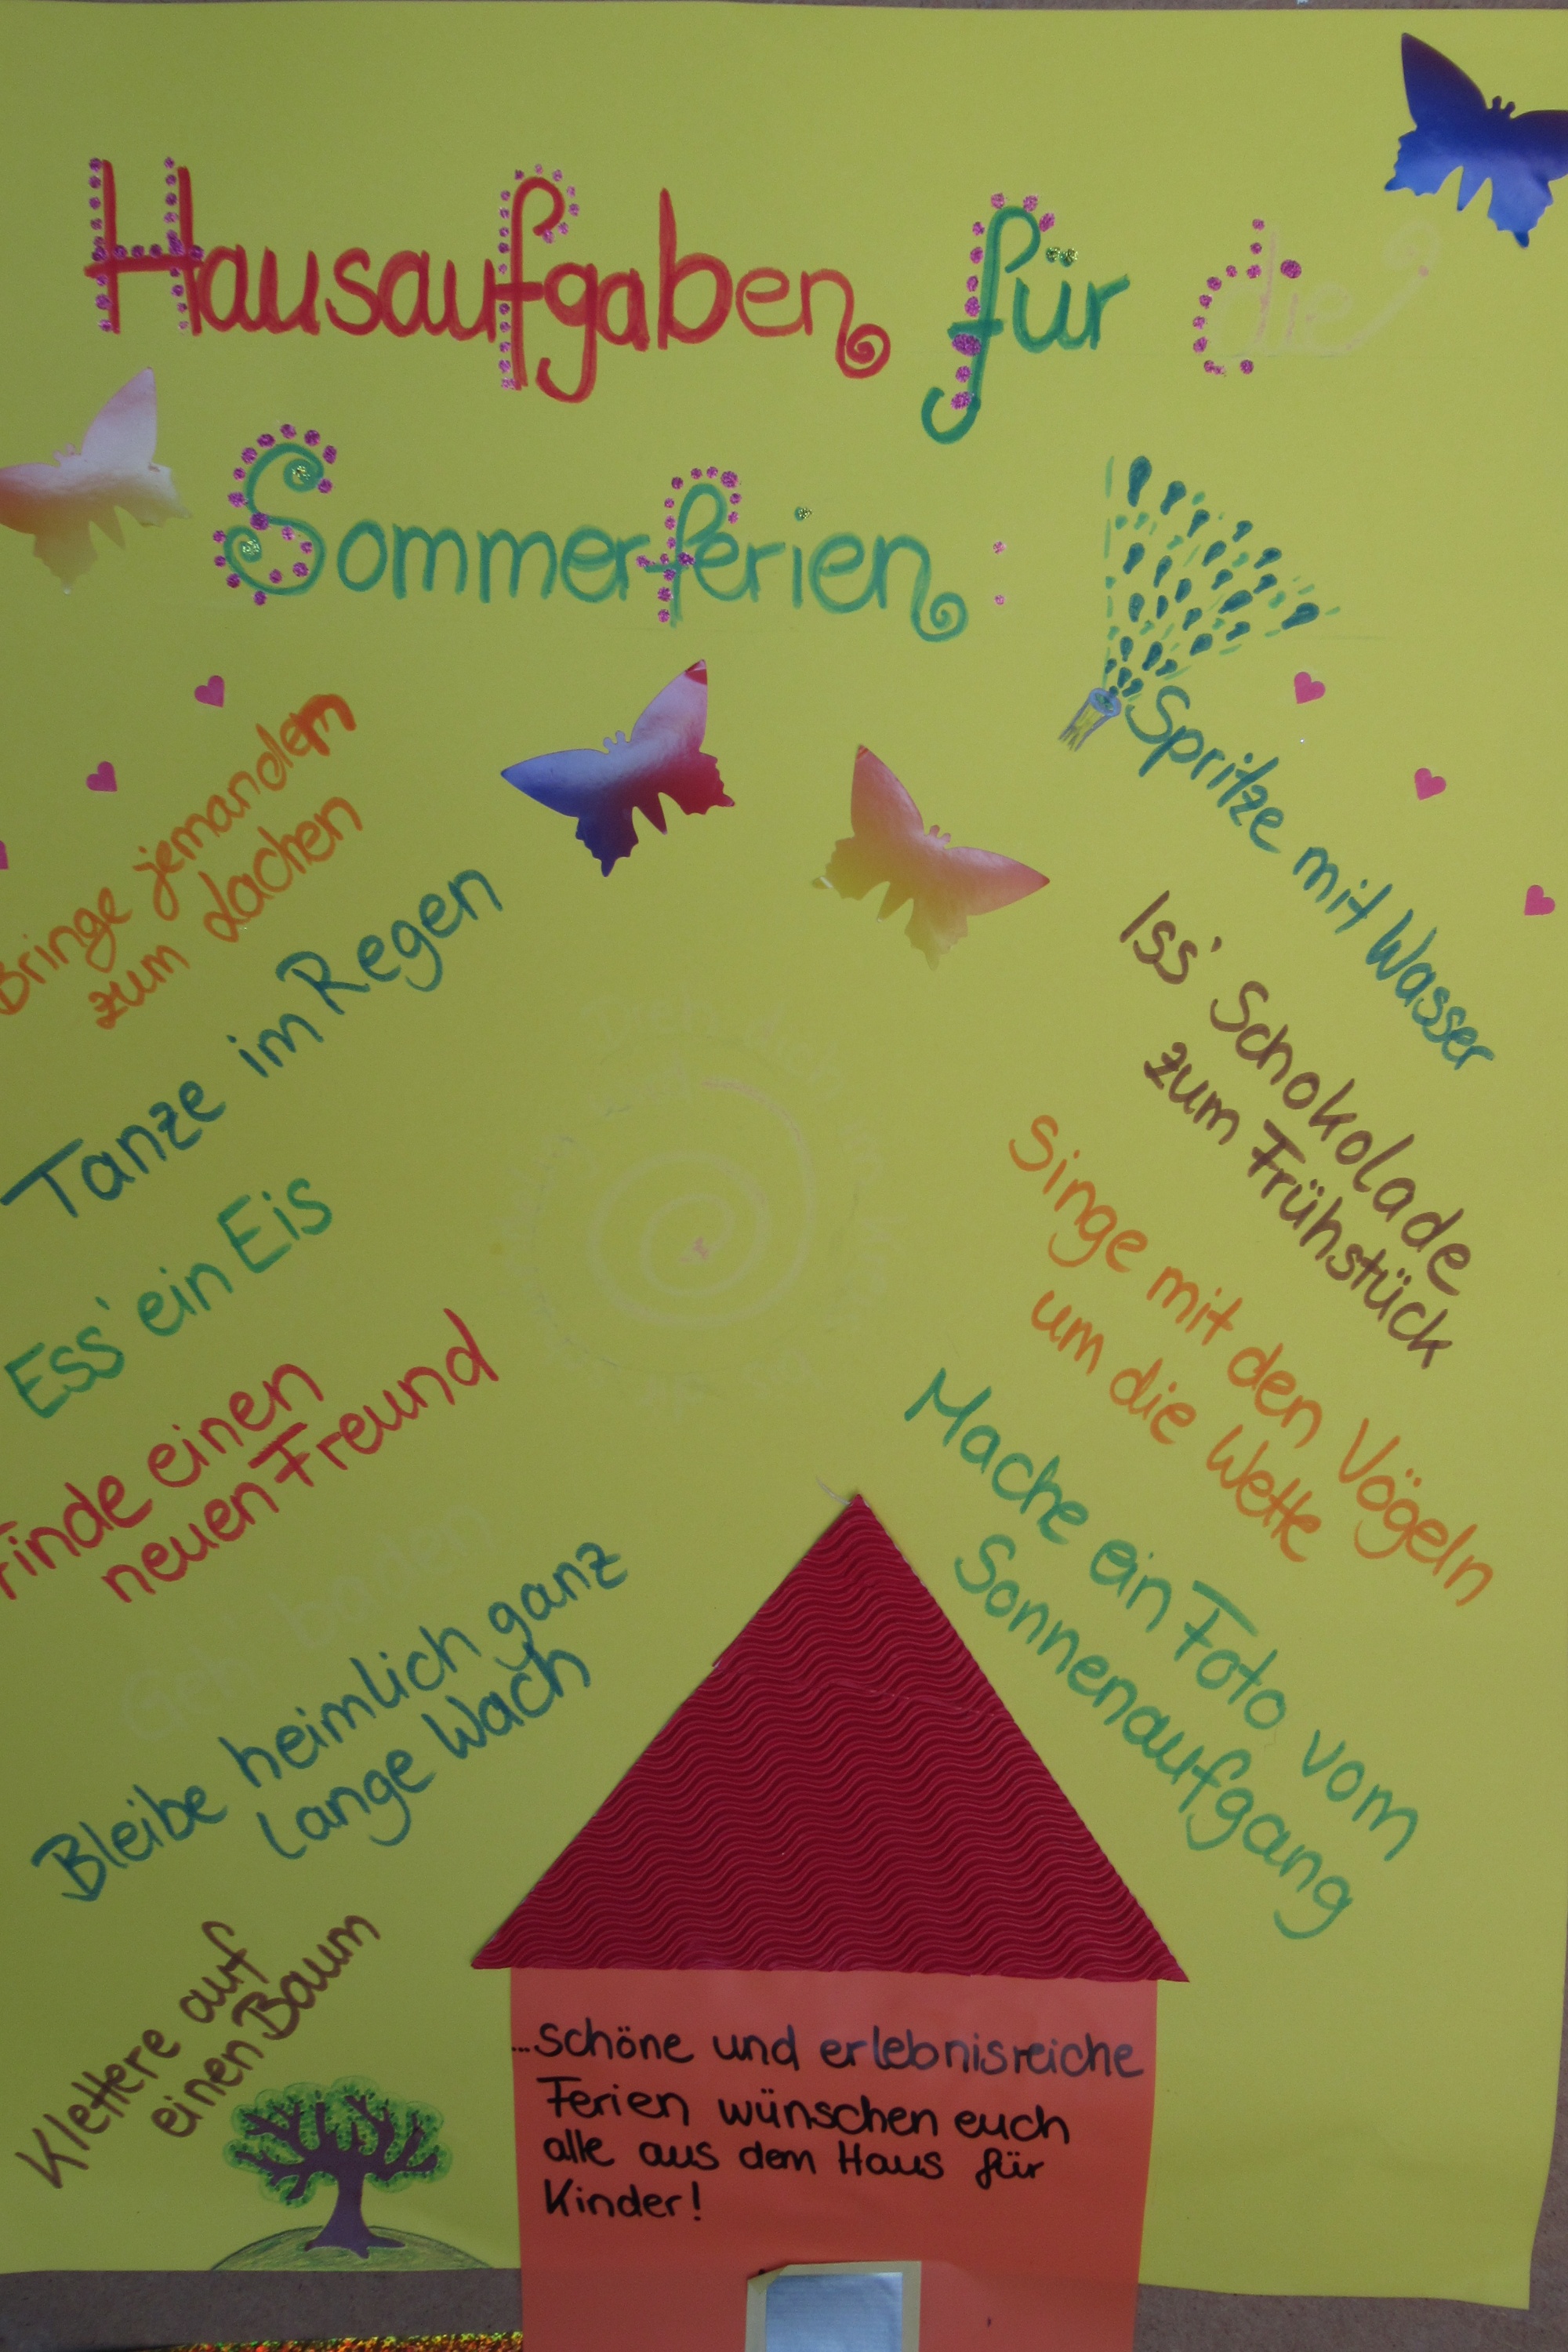 Hausaufgaben für die
Sommerferien:
Bringe jemandem
zum Lachen
Tanze im Regen
Ess' ein Eis
Finde einen
neuen Freund
Geh baden
Bleibe heimlich ganz
lange Wach
Klettere auf
einen Baum
Spritze mit Wasser
Iss' Schokolade
zum Frühstück
Singe mit den Vögeln
um die Wette
Mache ein Foto vom
Sonnenaufgang
...schöne und erlebnisreiche
Ferien wünschen euch
alle aus dem Haus für
Kinder!